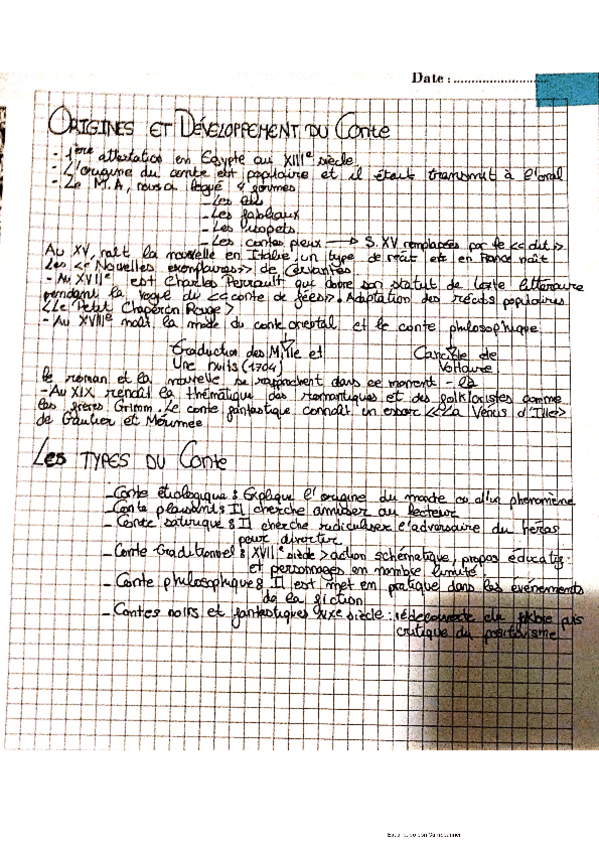 Date : ...........................
ORIGINES ET DÉVELOPPEMENT DU Conte
- 1ère attestation en Egypte au XIIIe siècle
- L'origine du conte est populaire et il était transmit à l'oral
- Le M.A, nous a légué 4 formes
- Les
- Les fabliaux
- Les isopets
- Les contes pieux → S. XV remplacées par le << dit >>
Au XV, naît la nouvelle en Italie, un type de récit et en France naît
Les << Nouvelles exemplaires >> de Cervantes
- Au XVIIe est Charles Perrault qui donne son statut de texte littéraire
pendant la vogue du << conte de fées >>. Adaptation des récits populaires
< Le Petit Chaperon Rouge >
- Au XVIIIe naît la mode du conte oriental et le conte philosophique
Traduction des Mille et Candide de
Une nuits (1704) Voltaire
le roman et la nouvelle se rapprochent dans ce moment - là
- Au XIX renaît la thématique des romantiques et des folkloristes comme
les frères Grimm. Le conte fantastique connaît un essor << La Vénus d'Ille >>
de Gautier et Mérimée
Les TYPES DU Conte
- Conte étiologique : Explique l'origine du monde ou d'un phénomène
- Conte plaisants : Il cherche amuser au lecteur
- Conte satirique : Il cherche ridiculiser l'adversaire du héros
pour divertir
- Conte traditionnel : XVIIe siècle > action schématique, propos éducatif
et personnages en nombre limité
- Conte philosophique : Il est met en pratique dans les événements
de la fiction
- Contes noirs et fantastiques XIXe siècle : redécouverte du
critique du positivisme